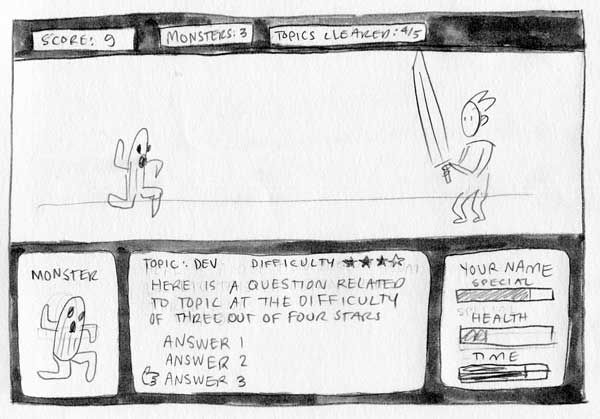 SCORE: 9
MONSTERS: 3
TOPICS CLEARED: 4/5
MONSTER
TOPIC: DEV
DIFFICULTY ★★★☆
HERE IS A QUESTION RELATED
TO TOPIC AT THE DIFFICULTY
OF THREE OUT OF FOUR STARS
ANSWER 1
ANSWER 2
ANSWER 3
YOUR NAME
SPECIAL
HEALTH
TIME